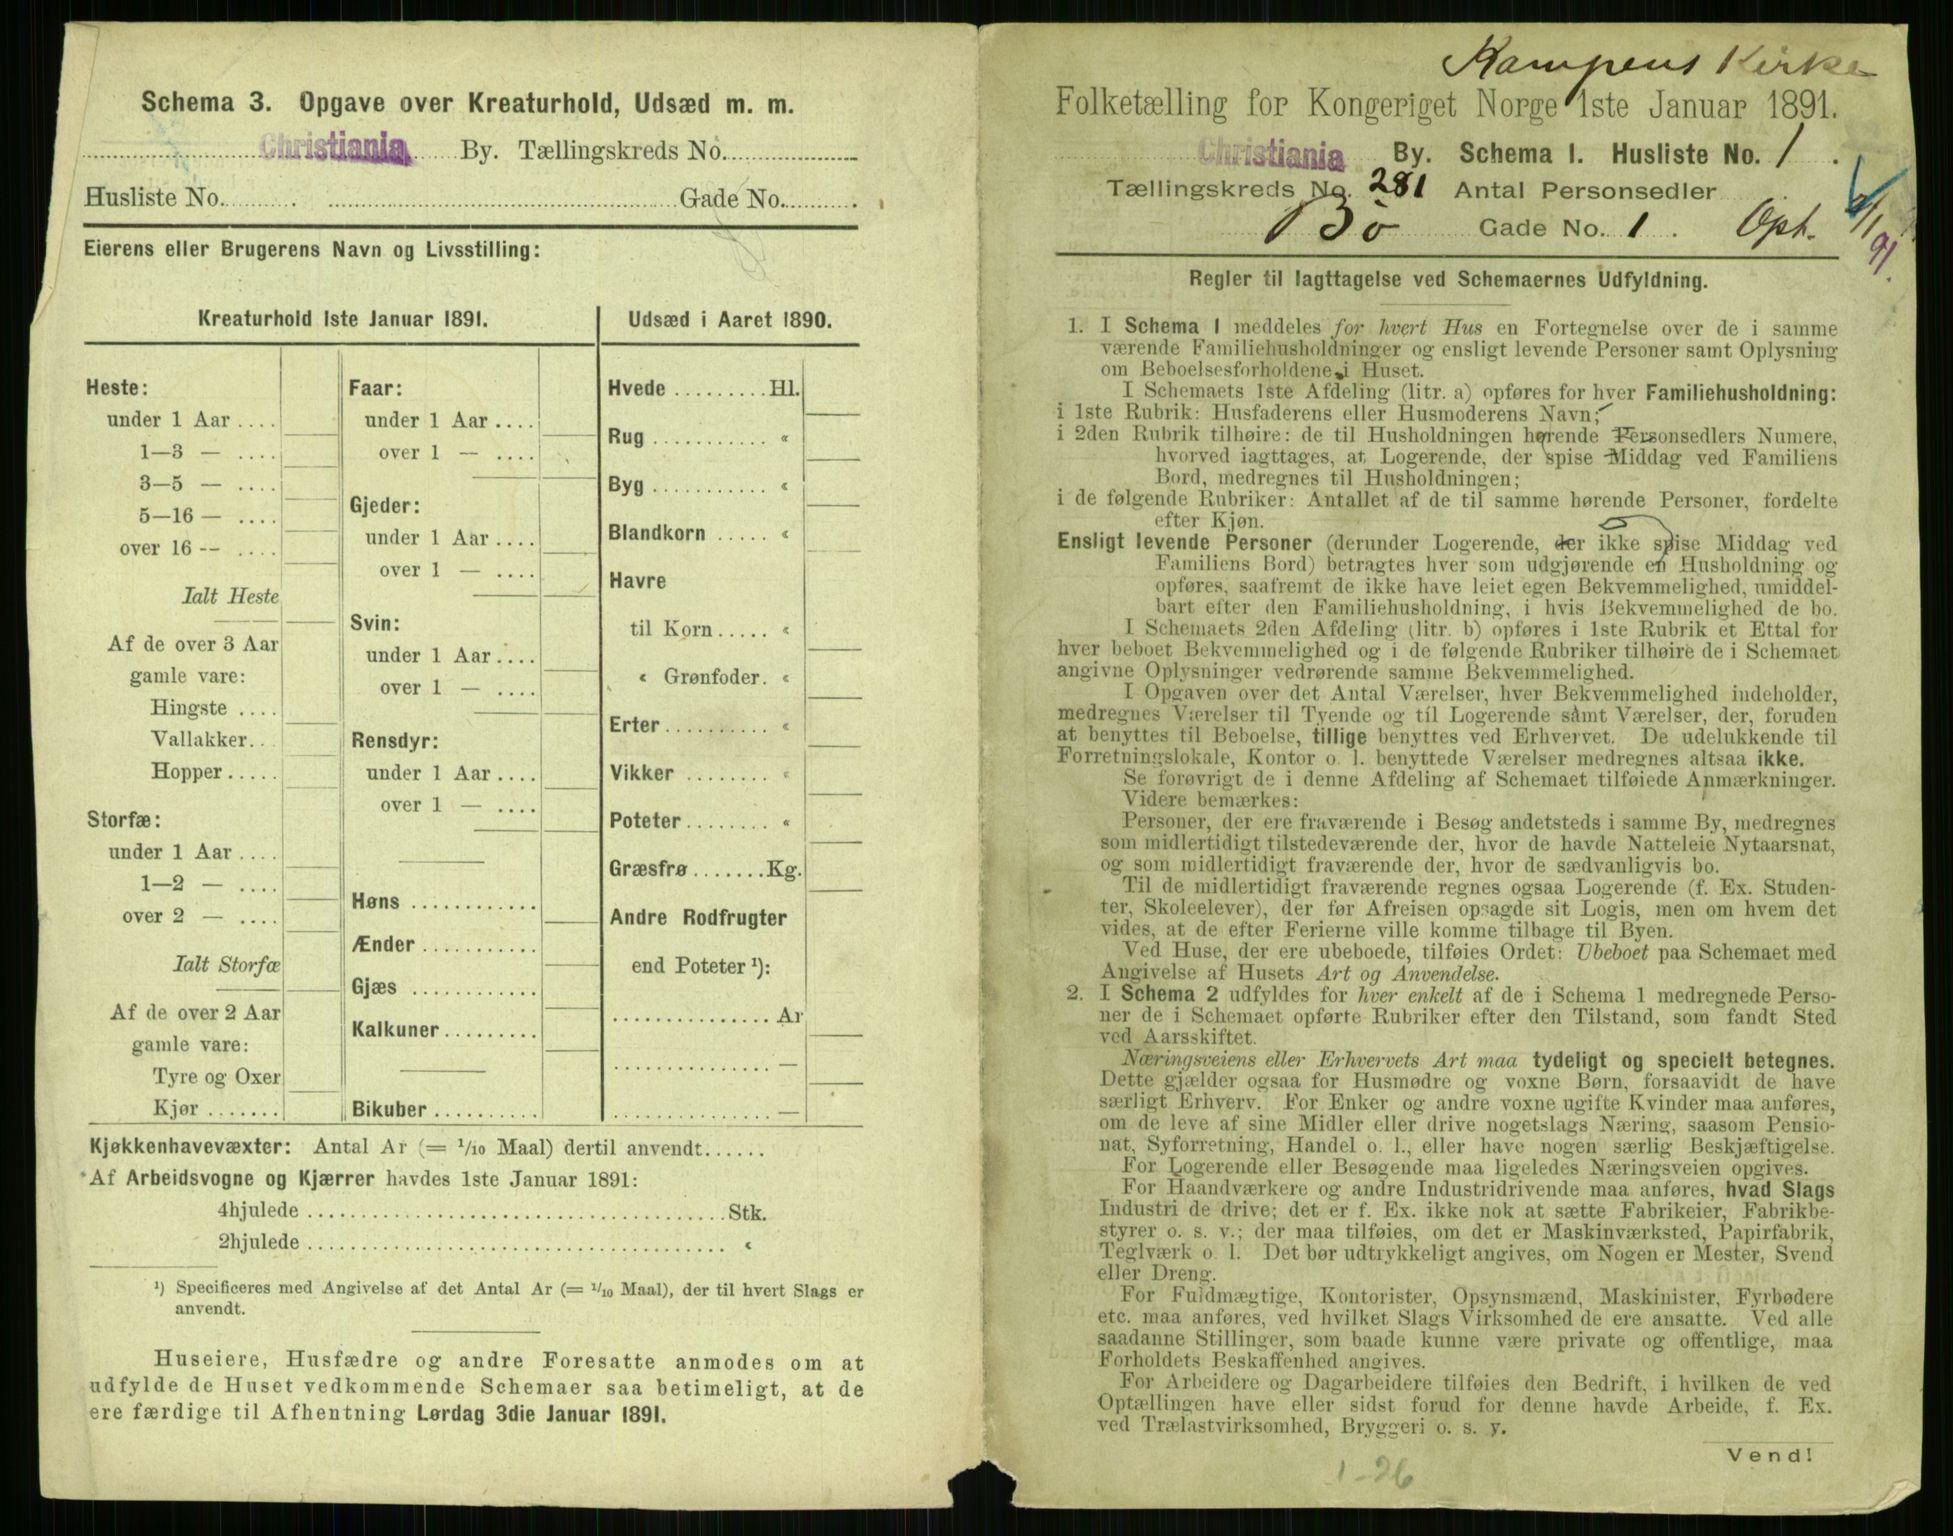 Schema 3. Opgave over Kreaturhold, Udsæd m. m.
Christiania By. Tællingskreds No.
Husliste No. Gade No.
Eierens eller Brugerens Navn og Livsstilling:
Kreaturhold 1ste Januar 1891.
Heste:
under 1 Aar
1—3 —
3—5 —
5—16 —
over 16 —
Ialt Heste
Af de over 3 Aar
gamle vare:
Hingste
Vallakker
Hopper
Storfæ:
under 1 Aar
1—2 —
over 2 —
Ialt Storfæ
Af de over 2 Aar
gamle vare:
Tyre og Oxer
Kjør
Faar:
under 1 Aar
over 1 —
Gjeder:
under 1 Aar
over 1 —
Svin:
under 1 Aar
over 1 —
Rensdyr:
under 1 Aar
over 1 —
Høns
Ænder
Gjæs
Kalkuner
Bikuber
Udsæd i Aaret 1890.
Hvede Hl.
Rug «
Byg «
Blandkorn «
Havre
til Korn «
« Grønfoder «
Erter «
Vikker «
Poteter «
Græsfrø Kg.
Andre Rodfrugter
end Poteter ¹):
Ar
—
—
Kjøkkenhavevæxter: Antal Ar (= 1/10 Maal) dertil anvendt
Af Arbeidsvogne og Kjærrer havdes 1ste Januar 1891:
4hjulede Stk.
2hjulede «
¹) Specificeres med Angivelse af det Antal Ar (= 1/10 Maal), der til hvert Slags er
anvendt.
Huseiere, Husfædre og andre Foresatte anmodes om at
udfylde de Huset vedkommende Schemaer saa betimeligt, at de
ere færdige til Afhentning Lørdag 3die Januar 1891.
Kampens Kirke
Folketælling for Kongeriget Norge 1ste Januar 1891.
Christiania By. Schema 1. Husliste No. 1.
Tællingskreds No. 281 Antal Personsedler
Bö Gade No. 1. Opt.
91.
Regler til Iagttagelse ved Schemaernes Udfyldning.
1. I Schema 1 meddeles for hvert Hus en Fortegnelse over de i samme
værende Familiehusholdninger og ensligt levende Personer samt Oplysning
om Beboelsesforholdene i Huset.
I Schemaets 1ste Afdeling (litr. a) opføres for hver Familiehusholdning:
i 1ste Rubrik: Husfaderens eller Husmoderens Navn;
i 2den Rubrik tilhøire: de til Husholdningen hørende Personsedlers Numere,
hvorved iagttages, at Logerende, der spise Middag ved Familiens
Bord, medregnes til Husholdningen;
i de følgende Rubriker: Antallet af de til samme hørende Personer, fordelte
efter Kjøn.
Ensligt levende Personer (derunder Logerende, der ikke spise Middag ved
Familiens Bord) betragtes hver som udgjørende en Husholdning og
opføres, saafremt de ikke have leiet egen Bekvemmelighed, umiddel-
bart efter den Familiehusholdning, i hvis Bekvemmelighed de bo.
I Schemaets 2den Afdeling (litr. b) opføres i 1ste Rubrik et Ettal for
hver beboet Bekvemmelighed og i de følgende Rubriker tilhøire de i Schemaet
angivne Oplysninger vedrørende samme Bekvemmelighed.
I Opgaven over det Antal Værelser, hver Bekvemmelighed indeholder,
medregnes Værelser til Tyende og til Logerende samt Værelser, der, foruden
at benyttes til Beboelse, tillige benyttes ved Erhvervet. De udelukkende til
Forretningslokale, Kontor o. l. benyttede Værelser medregnes altsaa ikke.
Se forøvrigt de i denne Afdeling af Schemaet tilføiede Anmærkninger.
Videre bemærkes:
Personer, der ere fraværende i Besøg andetsteds i samme By, medregnes
som midlertidigt tilstedeværende der, hvor de havde Natteleie Nytaarsnat,
og som midlertidigt fraværende der, hvor de sædvanligvis bo.
Til de midlertidigt fraværende regnes ogsaa Logerende (f. Ex. Studen-
ter, Skoleelever), der før Afreisen opsagde sit Logis, men om hvem det
vides, at de efter Ferierne ville komme tilbage til Byen.
Ved Huse, der ere ubeboede, tilføies Ordet: Ubeboet paa Schemaet med
Angivelse af Husets Art og Anvendelse.
2. I Schema 2 udfyldes for hver enkelt af de i Schema 1 medregnede Perso-
ner de i Schemaet opførte Rubriker efter den Tilstand, som fandt Sted
ved Aarsskiftet.
Næringsveiens eller Erhvervets Art maa tydeligt og specielt betegnes.
Dette gjælder ogsaa for Husmødre og voxne Børn, forsaavidt de have
særligt Erhverv. For Enker og andre voxne ugifte Kvinder maa anføres,
om de leve af sine Midler eller drive nogetslags Næring, saasom Pensio-
nat, Syforretning, Handel o. l., eller have nogen særlig Beskjæftigelse.
For Logerende eller Besøgende maa ligeledes Næringsveien opgives.
For Haandværkere og andre Industridrivende maa anføres, hvad Slags
Industri de drive; det er f. Ex. ikke nok at sætte Fabrikeier, Fabrikbe-
styrer o. s. v.; der maa tilføies, om det er Maskinværksted, Papirfabrik,
Teglværk o. l. Det bør udtrykkeligt angives, om Nogen er Mester, Svend
eller Dreng.
For Fuldmægtige, Kontorister, Opsynsmænd, Maskinister, Fyrbødere
etc. maa anføres, ved hvilket Slags Virksomhed de ere ansatte. Ved alle
saadanne Stillinger, som baade kunne være private og offentlige, maa
Forholdets Beskaffenhed angives.
For Arbeidere og Dagarbeidere tilføies den Bedrift, i hvilken de ved
Optællingen have eller sidst forud for denne havde Arbeide, f. Ex.
ved Trælastvirksomhed, Bryggeri o. s. v.
Vend!
1-26